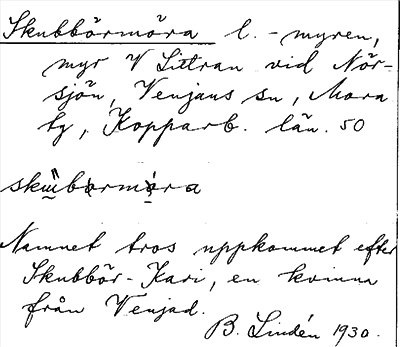 Skubbörmöra l. -myren,
myr V Littran vid Nör-
sjön, Venjans sn, Mora
tg, Kopparb. län. 50
Namnet tros uppkommet efter
Skubbör-Kari, en kvinna
från Venjad.
B. Lindén 1930.